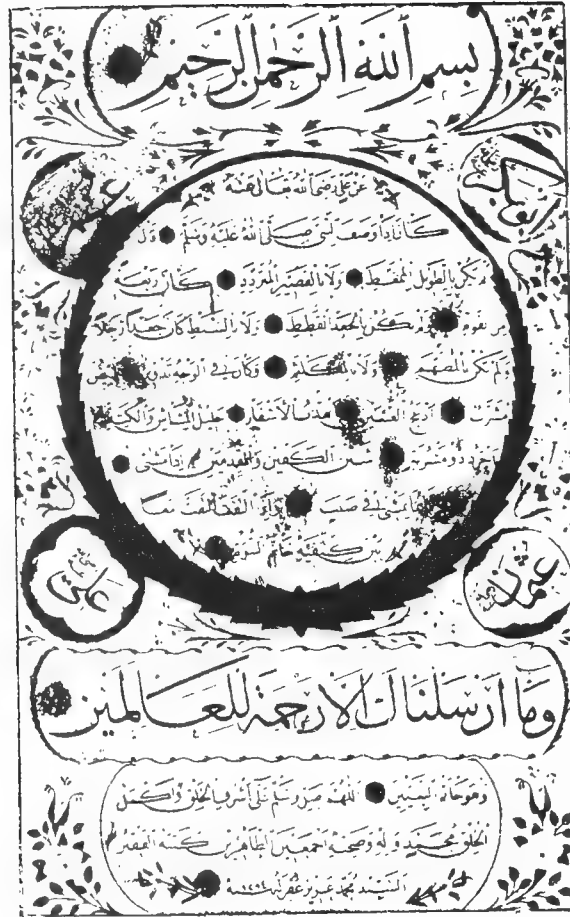 بسم الله الرحمن الرحيم
عن علي رضى الله تعالى عنه
كان اذا وصف النبي صلى الله عليه وسلم قال
لم يكن بالطويل الممغط ولا بالقصير المتردد كان ربعة
من القوم لم يكن بالجعد القطط ولا بالسبط كان جعدا رجلا
ولم يكن بالمطهم ولا بالمكلثم وكان في الوجه تدوير ابيض
مشرب ادعج العينين اهدب الاشفار جليل المشاش والكتد
اجرد ذو مسربة شثن الكفين والقدمين اذا مشى
كانما يمشي في صبب واذا التفت التفت معا
بين كتفيه خاتم النبوة
عثمان
علي
وما ارسلناك الا رحمة للعالمين
وهو خاتم النبيين اللهم صل وسلم على اشرف الخلق واكمل
الخلق محمد واله وصحبه اجمعين الطاهرين كتبه الفقير
السيد محمد